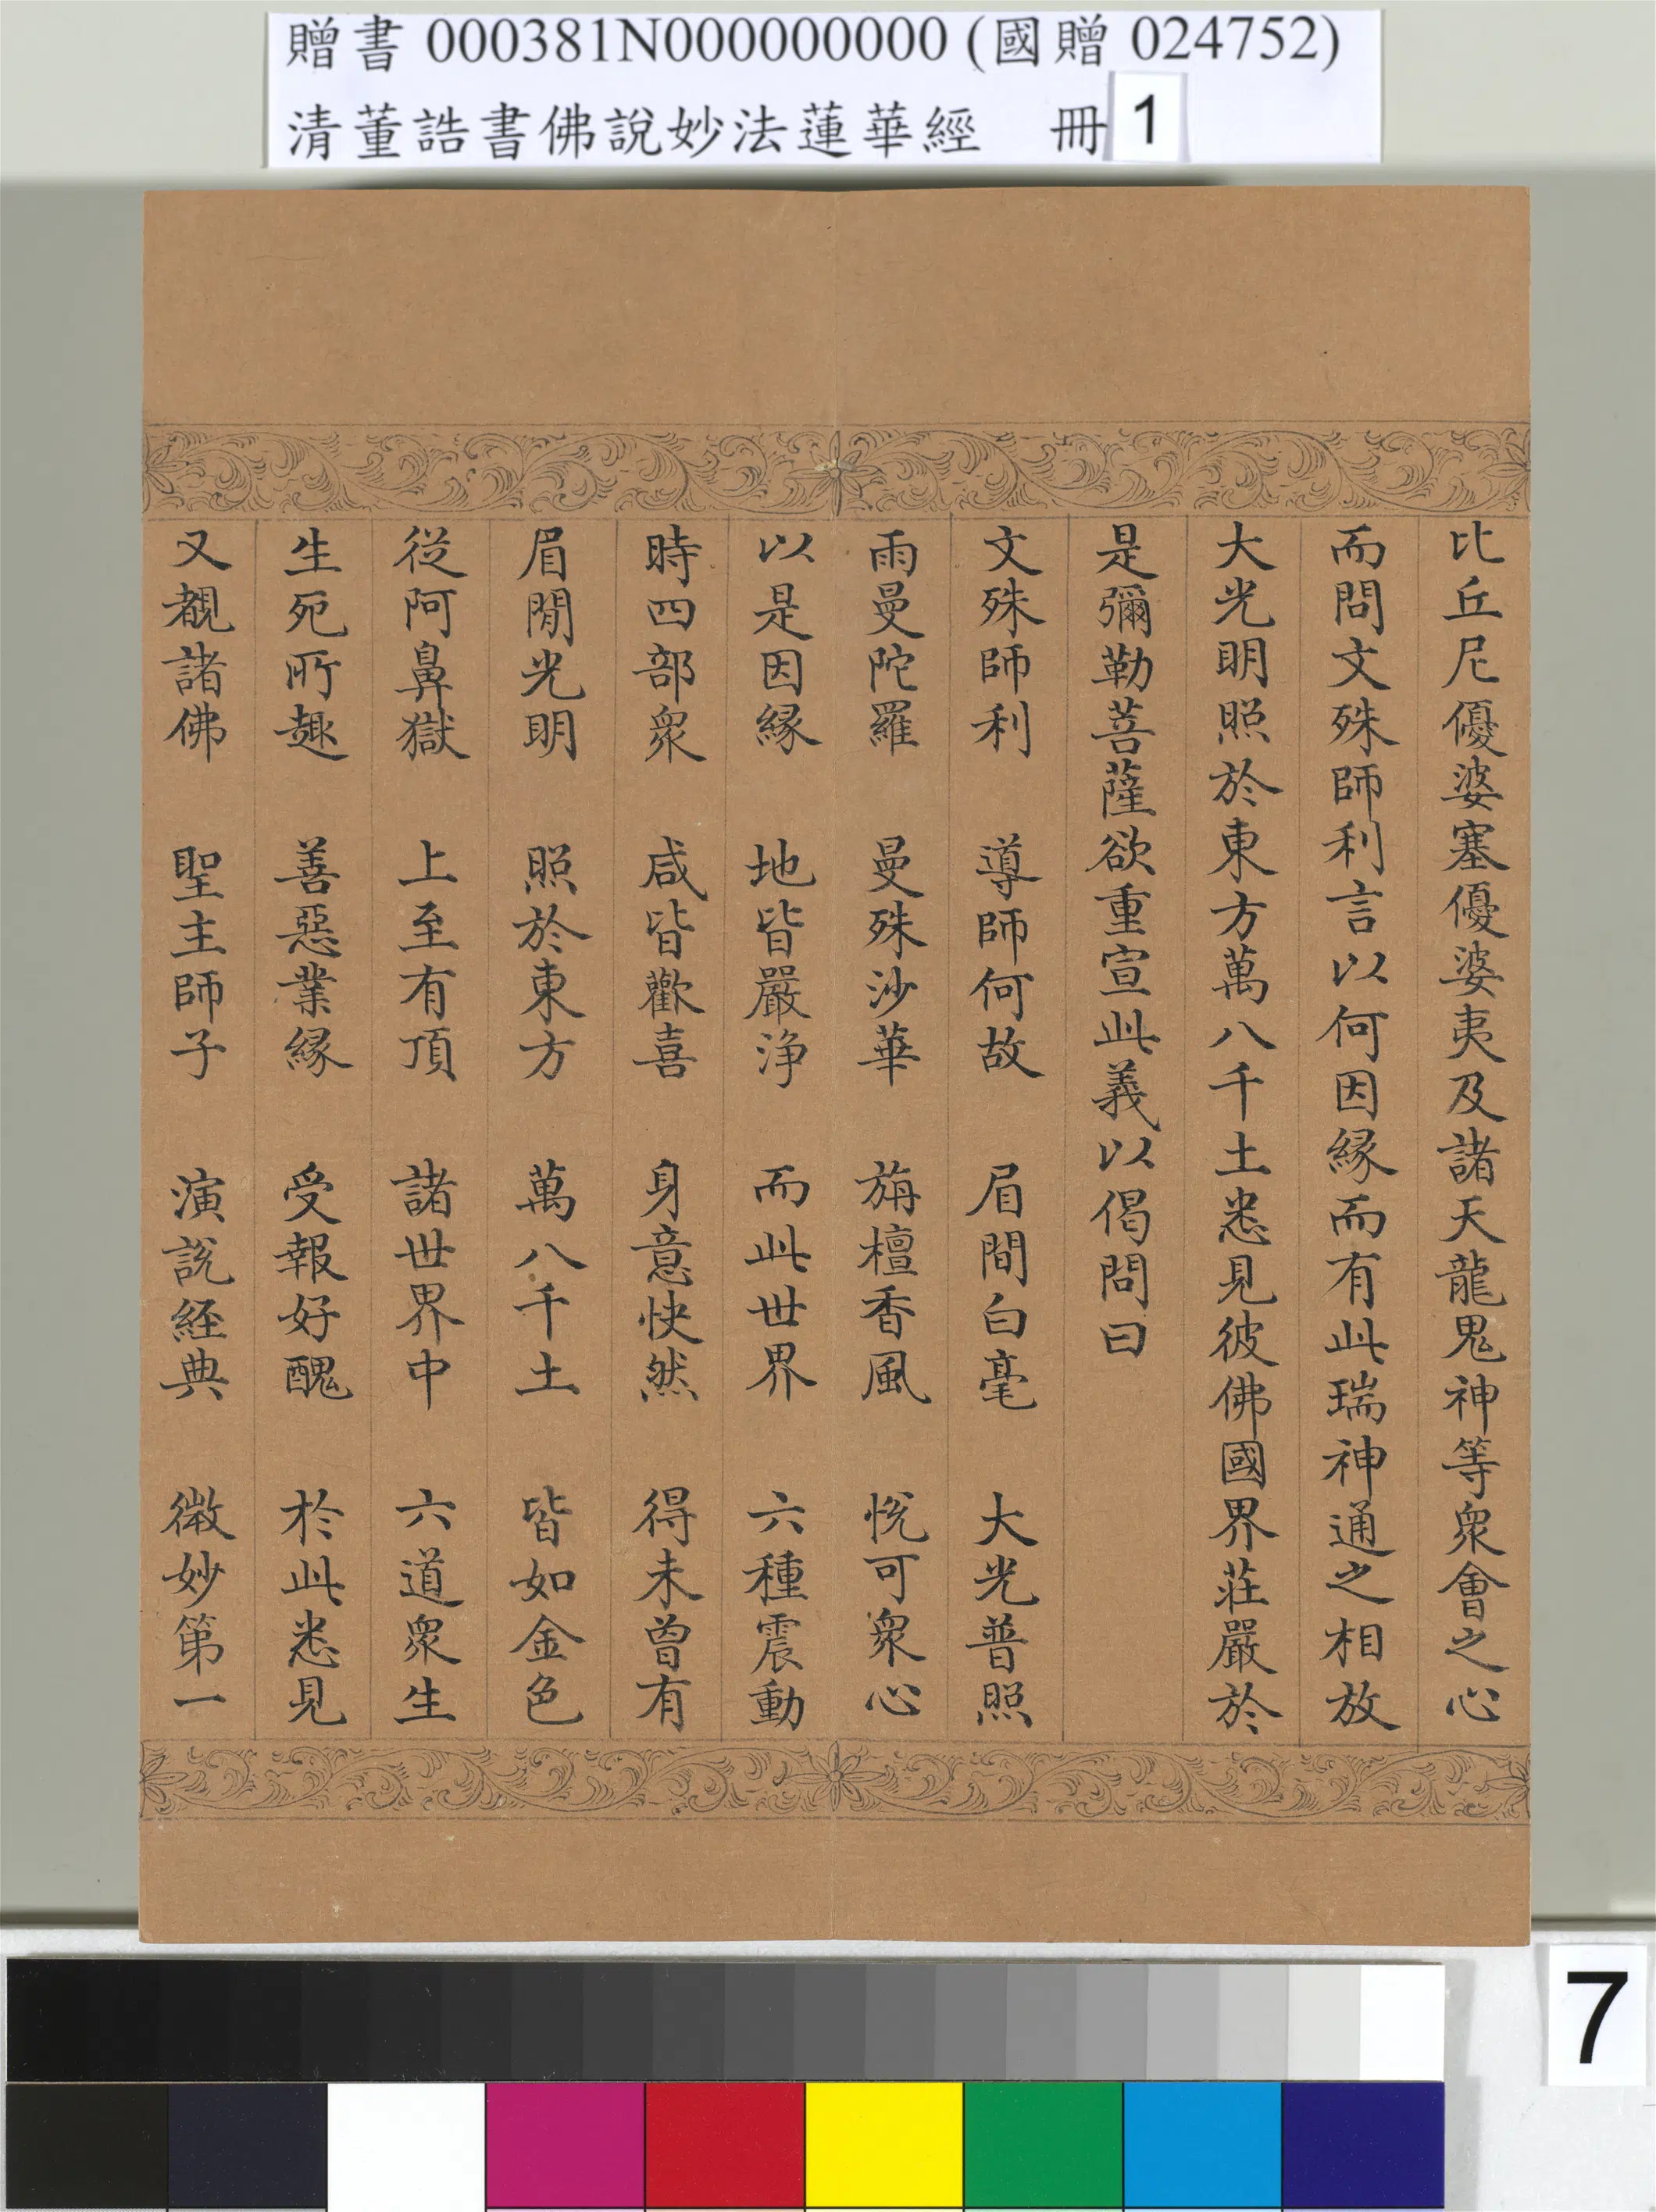 贈書 000381N000000000 (國贈 024752)
清董誥書佛說妙法蓮華經 冊 1
比丘尼優婆塞優婆夷及諸天龍鬼神等衆會之心
而問文殊師利言以何因縁而有此瑞神通之相放
大光明照於東方萬八千土悉見彼佛國界莊嚴於
是彌勒菩薩欲重宣此義以偈問曰
文殊師利 導師何故 眉間白毫 大光普照
雨曼陀羅 曼殊沙華 旃檀香風 悅可衆心
以是因縁 地皆嚴淨 而此世界 六種震動
時四部衆 咸皆歡喜 身意快然 得未曾有
眉閒光明 照於東方 萬八千土 皆如金色
從阿鼻獄 上至有頂 諸世界中 六道衆生
生死所趣 善惡業縁 受報好醜 於此悉見
又覩諸佛 聖主師子 演説經典 微妙第一
7